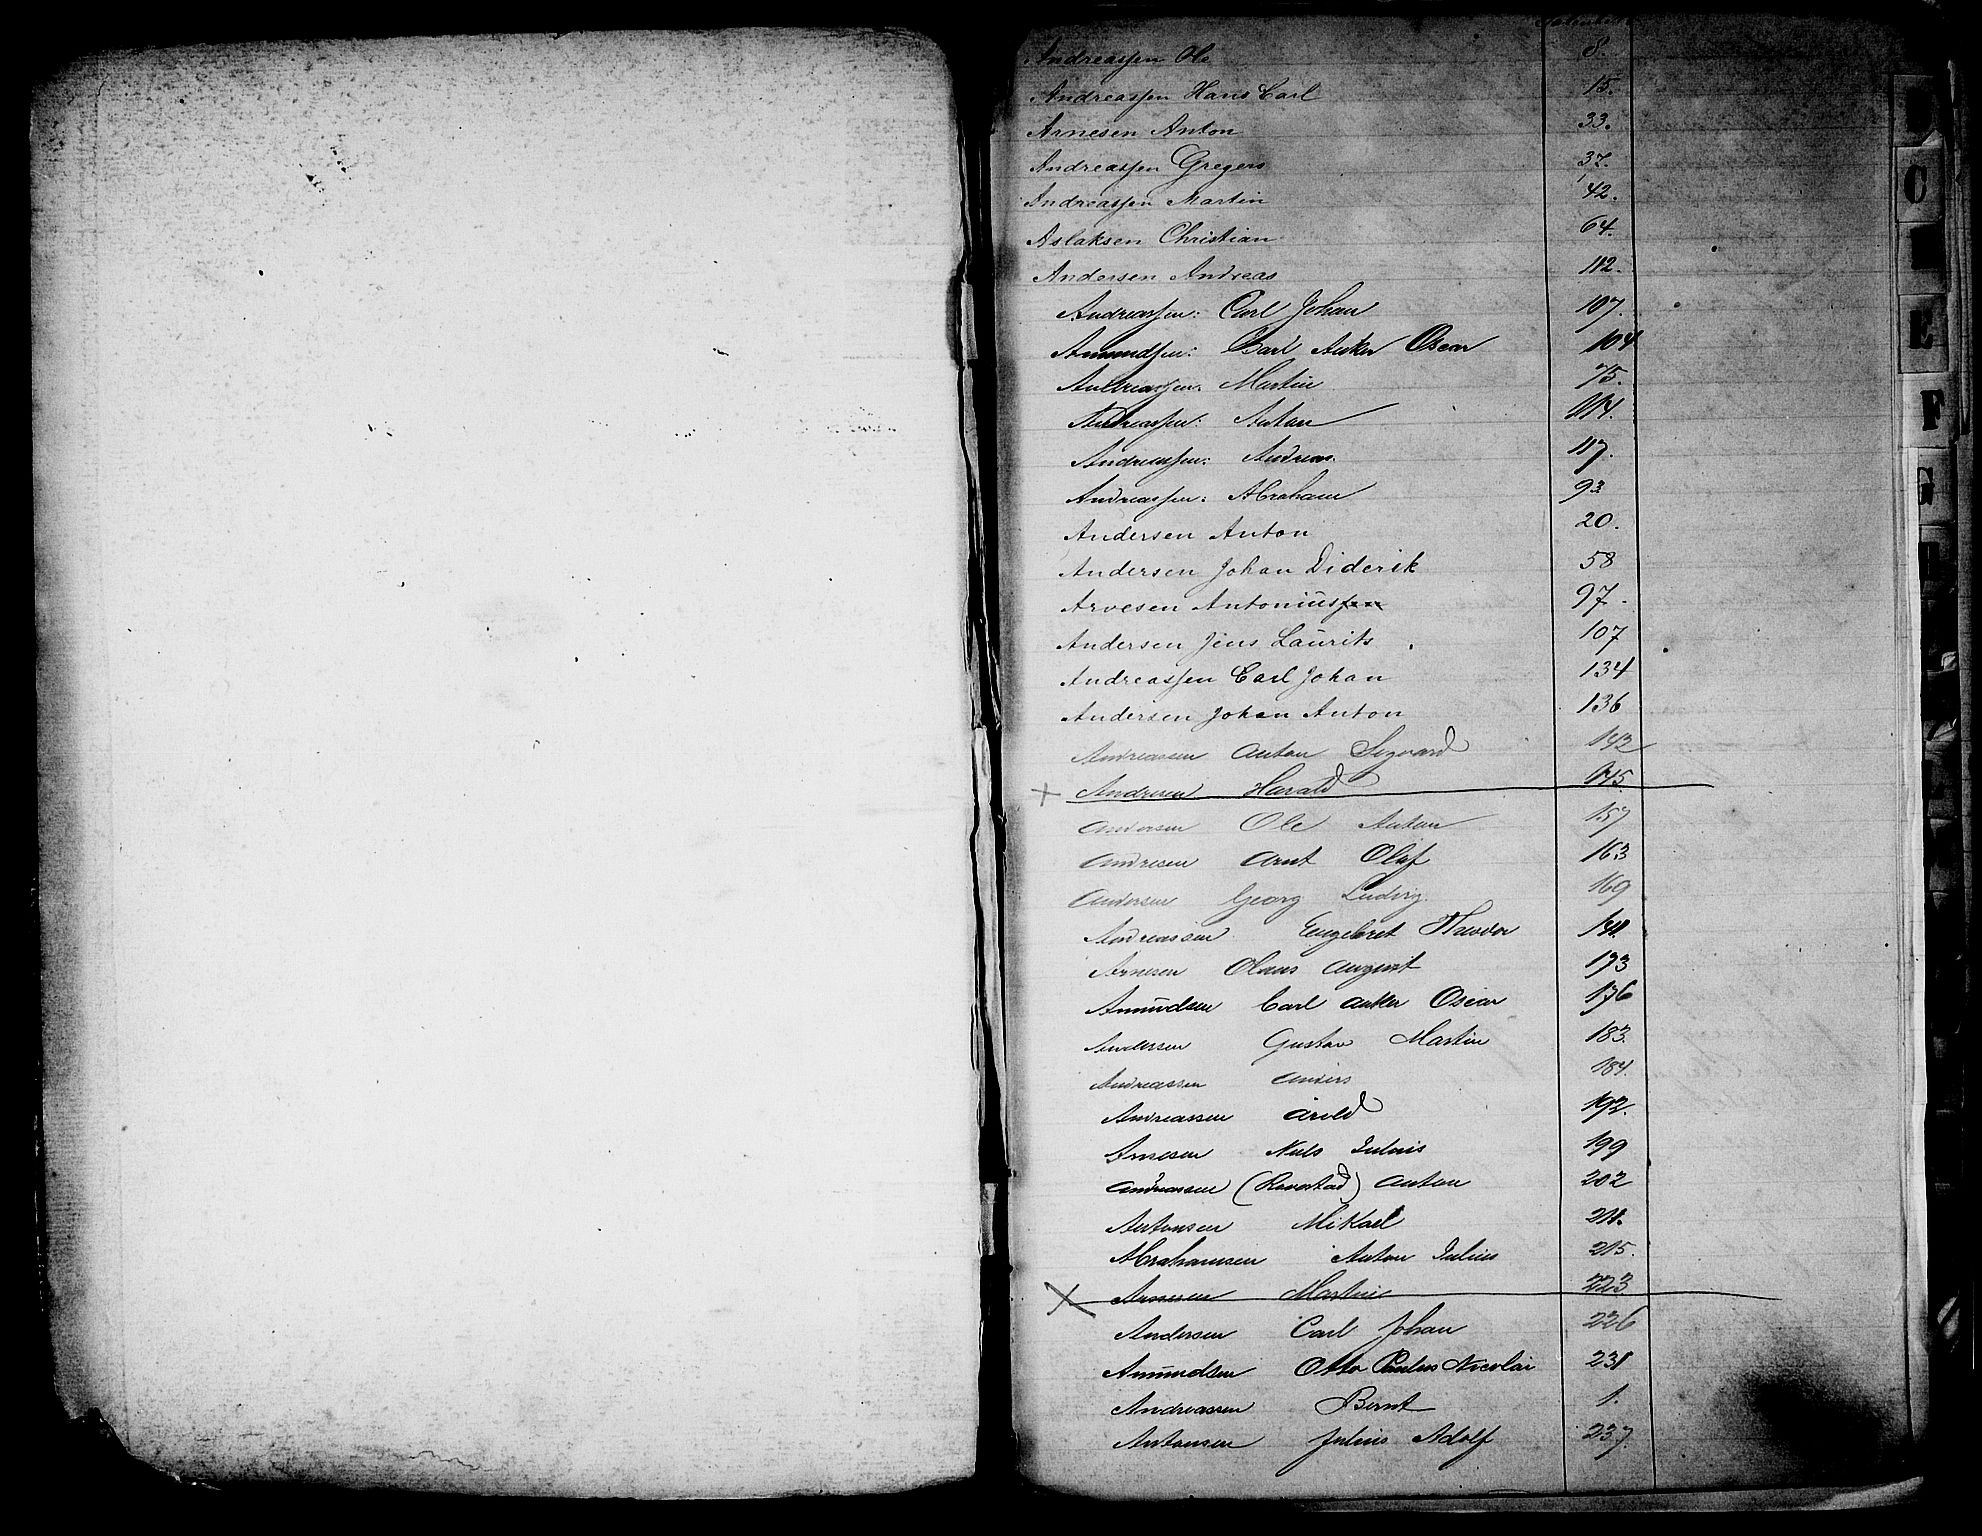 Andreasſen Ole 8
Andreasſen Hans Carl 15.
Arnesen Anton 33.
Andreasſen Gregers 37.
Andreasſen Martin 42.
Aslaksen Christian 64.
Andersen Andreas 112.
Andreasſen: Carl Johan 107.
Amundſen: Carl Anker Oscar 104
Andreasſen. Martin 75.
Andreasſen: Anton 114.
Andreasſen: Andreas. 117.
Andreasſen: Abraham 93
Andersen Anton 20.
Andersen Johan Diderik 58
Arvesen Antoniusſen 97.
Andersen Jens Laurits 107
Andreasſen Carl Johan 134
Andersen Johan Anton 136
Andreassen Anton Sigvard 142
Andresen Harald 145.
Andersen Ole Anton 157
Andresen Arnt Olaf 163
Andersen Georg Ludvig. 169
Andreassen Engebret Theodor
Arnesen Olaus August 173
Amundsen Carl Anker Oscar 176
Andersen Gustav Martin 183.
Andreassen Anders 184.
Andreassen Arild 192.
Arnesen Nils Julius 199
Andreassen (Revestad) Anton 202
Antonsen Mikael 211.
Abrahamsen Anton Julius 215.
Arnesen Martin 223
Andersen Carl Johan 226
Amundsen Otto Paulus Nicolai 231
Andreassen Bernt 1.
Antonsen Julius Adolf 237.
C
E
F
G